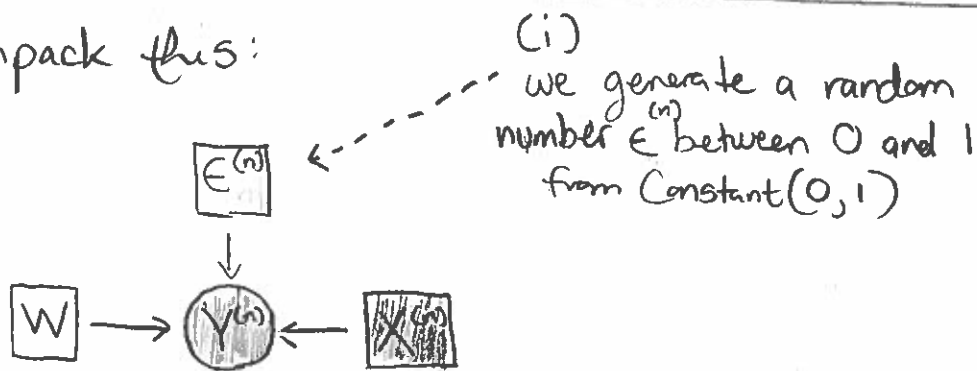 npack this:
(i)
we generate a random
number ϵ⁽ⁿ⁾ between 0 and 1
from Constant(0,1)
ϵ⁽ⁿ⁾
W
Y⁽ⁿ⁾
X⁽ⁿ⁾